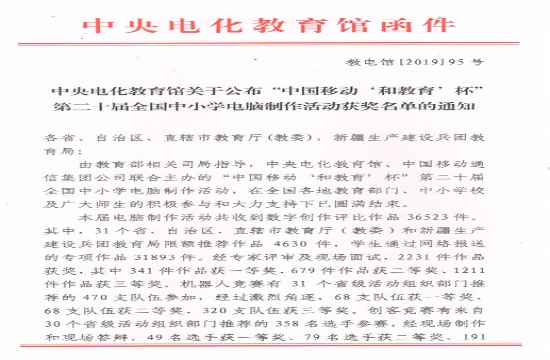 中央电化教育馆函件
教电馆[2019]95 号
中央电化教育馆关于公布“中国移动‘和教育’杯”
第二十届全国中小学电脑制作活动获奖名单的通知
各省、自治区、直辖市教育厅(教委)，新疆生产建设兵团教
育局：
由教育部相关司局指导，中央电化教育馆、中国移动通
信集团公司联合主办的“中国移动‘和教育’杯”第二十届
全国中小学电脑制作活动，在全国各地教育部门、中小学校
及广大师生的积极参与和大力支持下已圆满结束。
本届电脑制作活动共收到数字创作评比作品 36523 件。
其中，31 个省、自治区、直辖市教育厅（教委）和新疆生产
建设兵团教育局限额推荐作品 4630 件，学生通过网络报送
的专项作品 31893 件。经专家评审及现场面试，2231 件作品
获奖，其中 341 件作品获一等奖，679 件作品获二等奖，1211
件作品获三等奖。机器人竞赛有 31 个省级活动组织部门推
荐的 470 支队伍参加，经过激烈角逐，68 支队伍获一等奖，
68 支队伍获二等奖，320 支队伍获三等奖。创客竞赛有来自
30 个省级活动组织部门推荐的 358 名选手参赛，经现场制作
和现场答辩，49 名选手获一等奖、79 名选手获二等奖、191